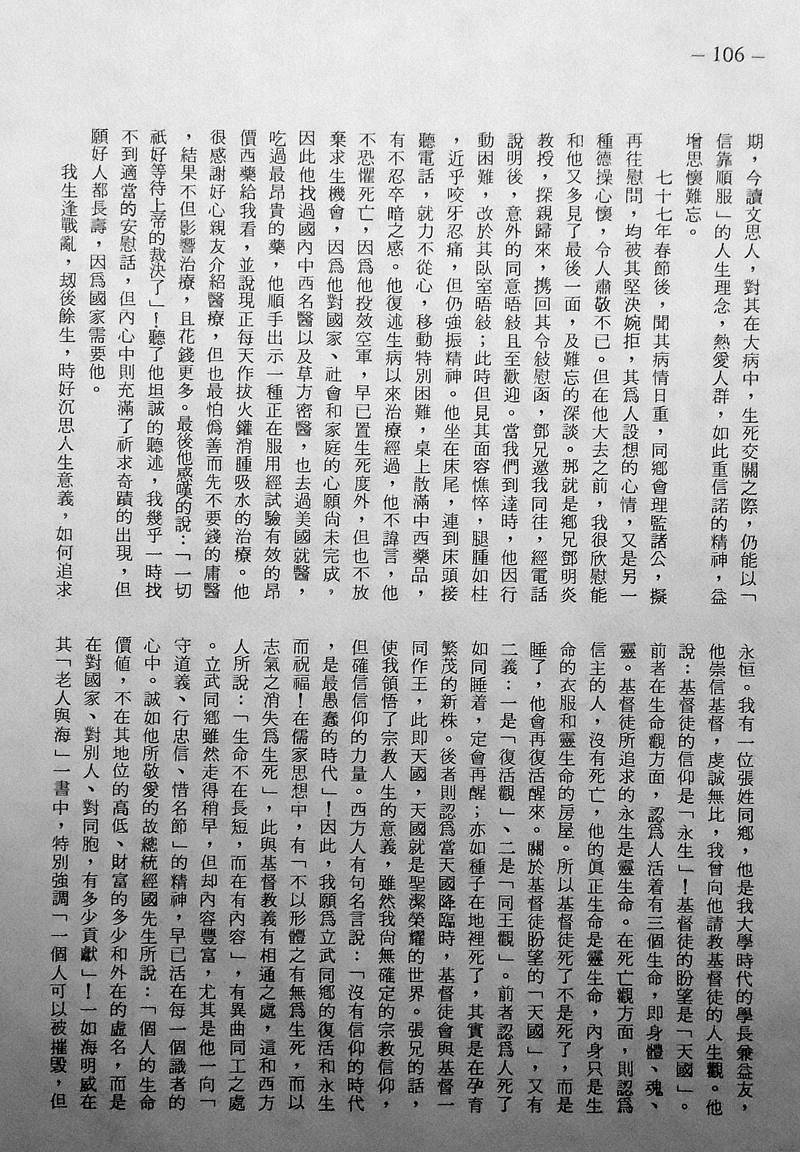 – 106 –
期，今讀文思人，對其在大病中，生死交關之際，仍能以「
信靠順服」的人生理念，熱愛人群，如此重信諾的精神，益
增思懷難忘。
七十七年春節後，聞其病情日重，同鄉會理監諸公，擬
再往慰問，均被其堅決婉拒，其爲人設想的心情，又是另一
種德操心懷，令人肅敬不已。但在他大去之前，我很欣慰能
和他又多見了最後一面，及難忘的深談。那就是鄉兄鄧明炎
教授，探親歸來，携回其令敍慰函，鄧兄邀我同往，經電話
說明後，意外的同意晤敍且至歡迎。當我們到達時，他因行
動困難，改於其臥室晤敍；此時但見其面容憔悴，腿腫如柱
，近乎咬牙忍痛，但仍強振精神。他坐在床尾，連到床頭接
聽電話，就力不從心，移動特別困難，桌上散滿中西藥品，
有不忍卒睹之感。他復述生病以來治療經過，他不諱言，他
不恐懼死亡，因爲他投效空軍，早已置生死度外，但也不放
棄求生機會，因爲他對國家、社會和家庭的心願尚未完成，
因此他找過國內中西名醫以及草方密醫，也去過美國就醫，
吃過最昂貴的藥，他順手出示一種正在服用經試驗有效的昂
價西藥給我看，並說現正每天作拔火鑵消腫吸水的治療。他
很感謝好心親友介紹醫療，但也最怕僞善而先不要錢的庸醫
，結果不但影響治療，且花錢更多。最後他感嘆的說：「一切
祇好等待上帝的裁決了」！聽了他坦誠的聽述，我幾乎一時找
不到適當的安慰話，但內心中則充滿了祈求奇蹟的出現，但
願好人都長壽，因爲國家需要他。
我生逢戰亂，刼後餘生，時好沉思人生意義，如何追求
永恒。我有一位張姓同鄉，他是我大學時代的學長兼益友，
他崇信基督，虔誠無比，我曾向他請教基督徒的人生觀。他
說：基督徒的信仰是「永生」！基督徒的盼望是「天國」。
前者在生命觀方面，認爲人活着有三個生命，即身體、魂、
靈。基督徒所追求的永生是靈生命。在死亡觀方面，則認爲
信主的人，沒有死亡，他的眞正生命是靈生命，內身只是生
命的衣服和靈生命的房屋。所以基督徒死了不是死了，而是
睡了，他會再復活醒來。關於基督徒盼望的「天國」，又有
二義：一是「復活觀」、二是「同王觀」。前者認爲人死了
如同睡着，定會再醒；亦如種子在地裡死了，其實是在孕育
繁茂的新株。後者則認爲當天國降臨時，基督徒會與基督一
同作王，此即天國，天國就是聖潔榮耀的世界。張兄的話，
使我領悟了宗教人生的意義，雖然我尙無確定的宗教信仰，
但確信信仰的力量。西方人有句名言說：「沒有信仰的時代
，是最愚蠢的時代」！因此，我願爲立武同鄉的復活和永生
而祝福！在儒家思想中，有「不以形體之有無爲生死，而以
志氣之消失爲生死」，此與基督教義有相通之處，這和西方
人所說：「生命不在長短，而在有內容」，有異曲同工之處
。立武同鄉雖然走得稍早，但却內容豐富，尤其是他一向「
守道義、行忠信、惜名節」的精神，早已活在每一個識者的
心中。誠如他所敬愛的故總統經國先生所說：「個人的生命
價値，不在其地位的高低、財富的多少和外在的虛名，而是
在對國家、對別人、對同胞，有多少貢獻」！一如海明威在
其「老人與海」一書中，特別強調「一個人可以被摧毀，但